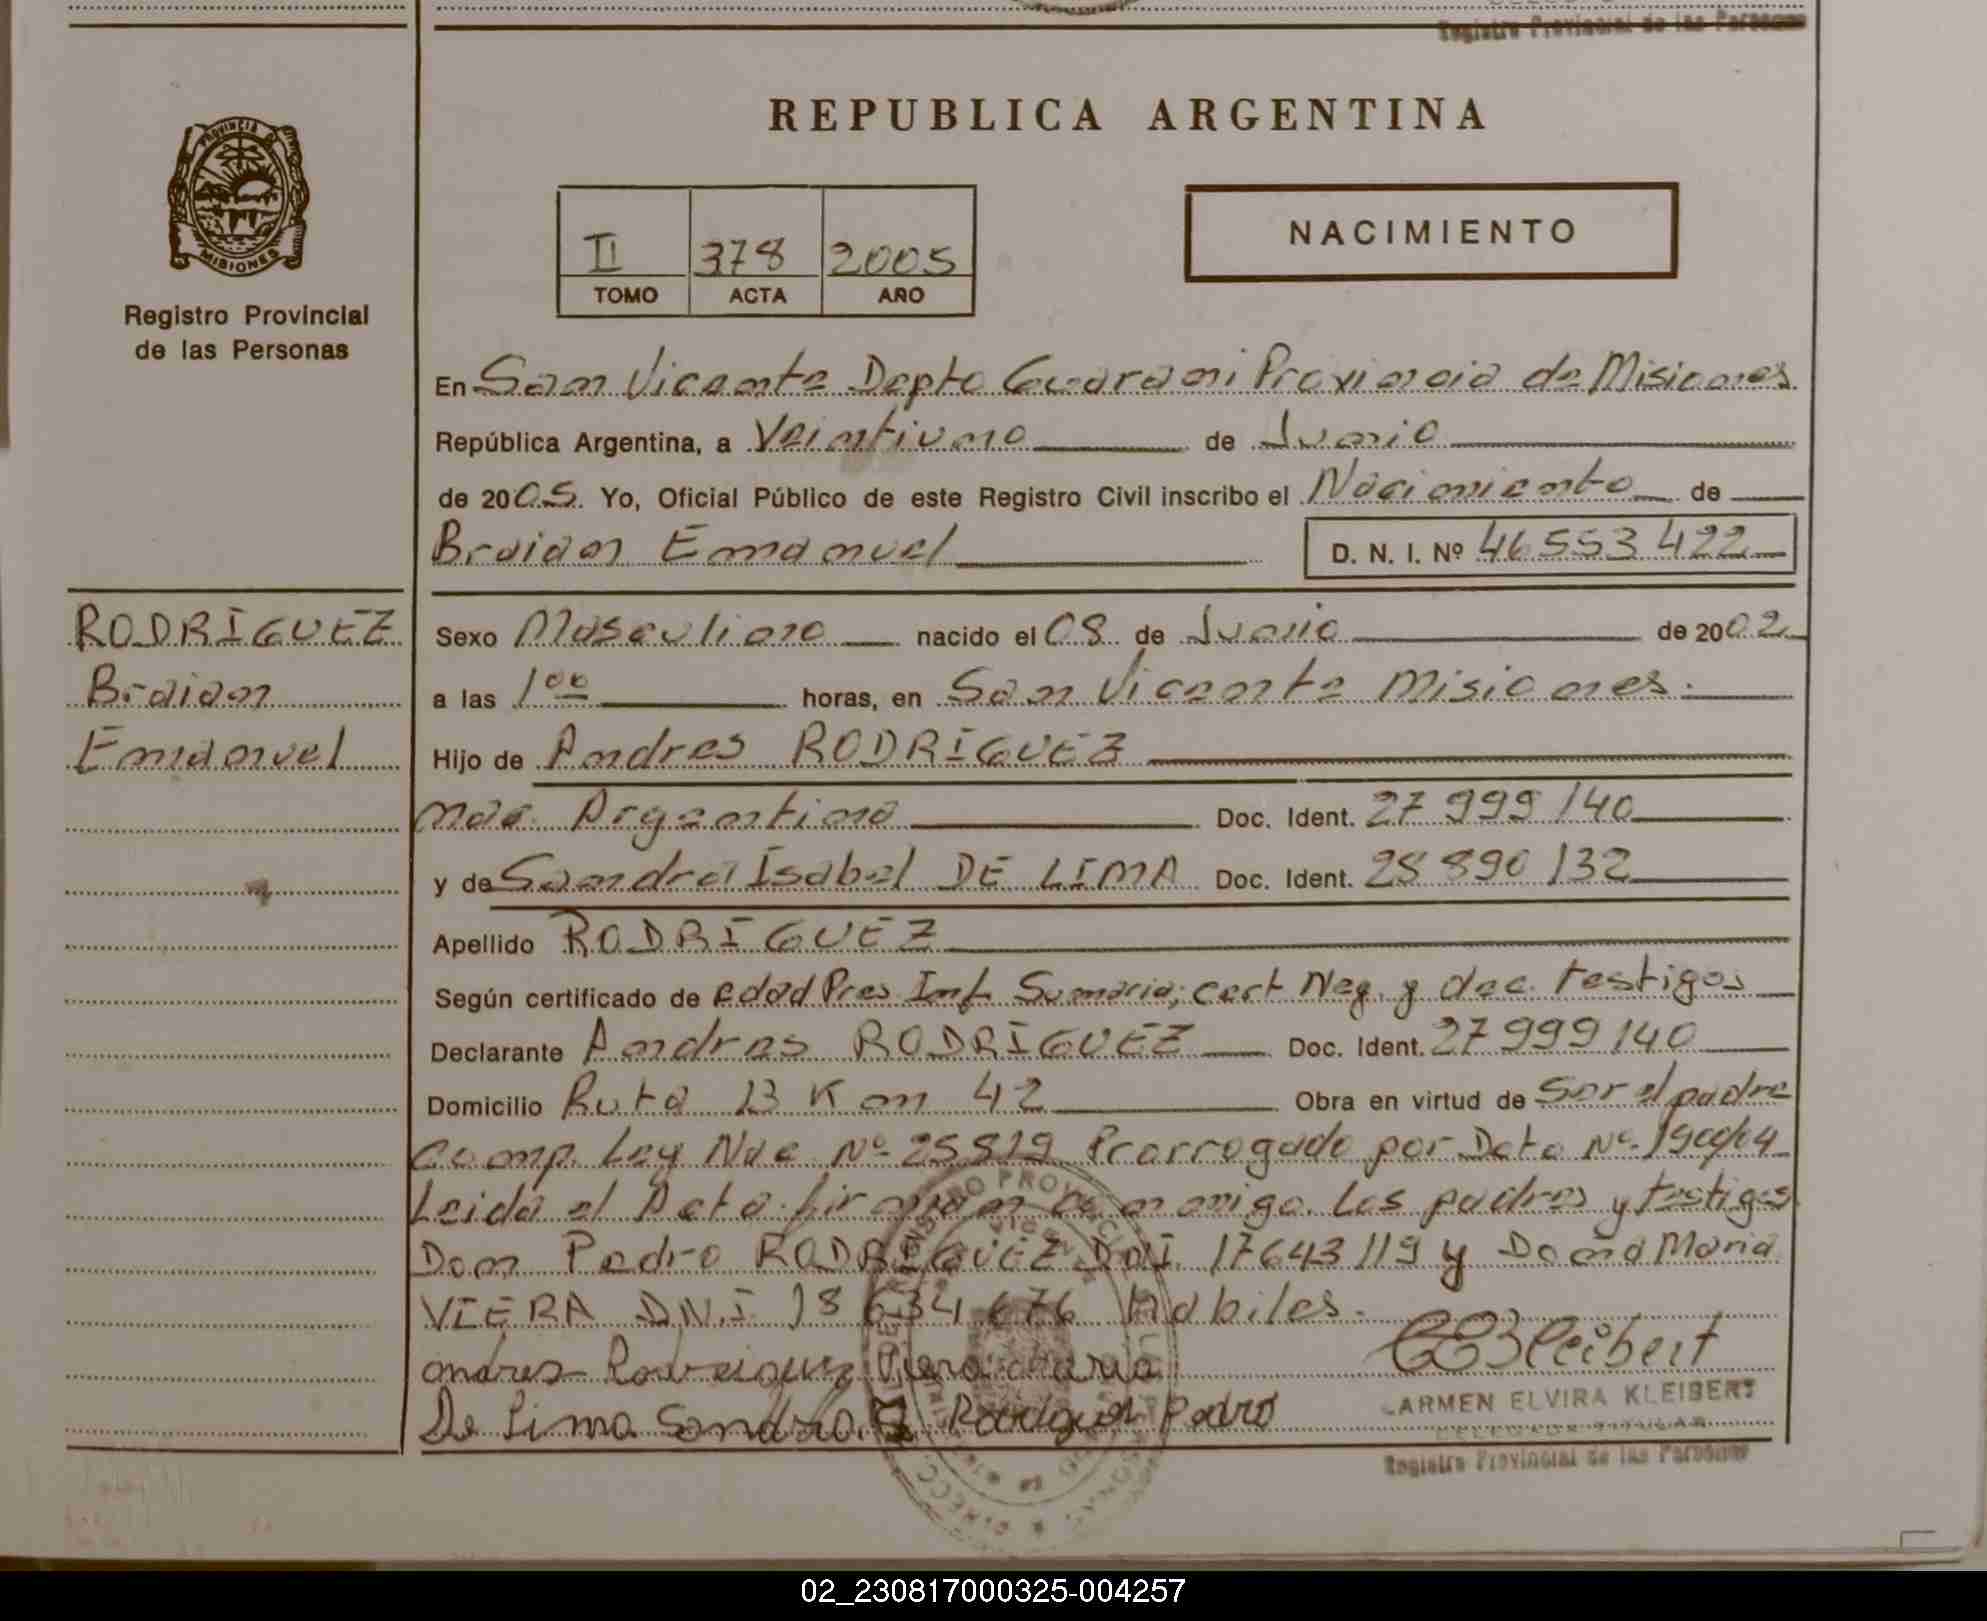 Registro Provincial de las Personas
PROVINCIA DE
MISIONES
Registro Provincial
de las Personas
REPUBLICA ARGENTINA
II 378 2005
TOMO ACTA AÑO
NACIMIENTO
En San Vicente Depto Guarani Provincia de Misiones
República Argentina, a Veintiuno de Junio
de 2005. Yo, Oficial Público de este Registro Civil inscribo el Nacimiento de
Braian Emanuel D. N. I. Nº 46553422
RODRIGUEZ
Braian
Emanuel
Sexo Masculino nacido el 08 de Junio de 2002
a las 1 00 horas, en San Vicente Misiones.
Hijo de Andres RODRIGUEZ
Nac. Argentina Doc. Ident. 27 999 140
y de Sandra Isabel DE LIMA Doc. Ident. 28 890 132
Apellido RODRIGUEZ
Según certificado de edad Pres Inf Sumaria; cert Neg. y dec. testigos
Declarante Andres RODRIGUEZ Doc. Ident. 27 999 140
Domicilio Ruta 13 Km 42 Obra en virtud de Ser el padre
Comp. Ley Nac Nº 25819 Prorrogado por Dcto Nº
Leida el Acta firman conmigo los padres y testigos
Don Pedro RODRIGUEZ DNI 17643119 y Doña Maria
VIERA D.N.I 18 634 676 Habiles.
andres Rodriguez Viera Maria
De Lima Sandra I Rodriguez Pedro
CEKleibert
CARMEN ELVIRA KLEIBERT
DELEGADA TITULAR
Registro Provincial de las Personas
02_230817000325-004257